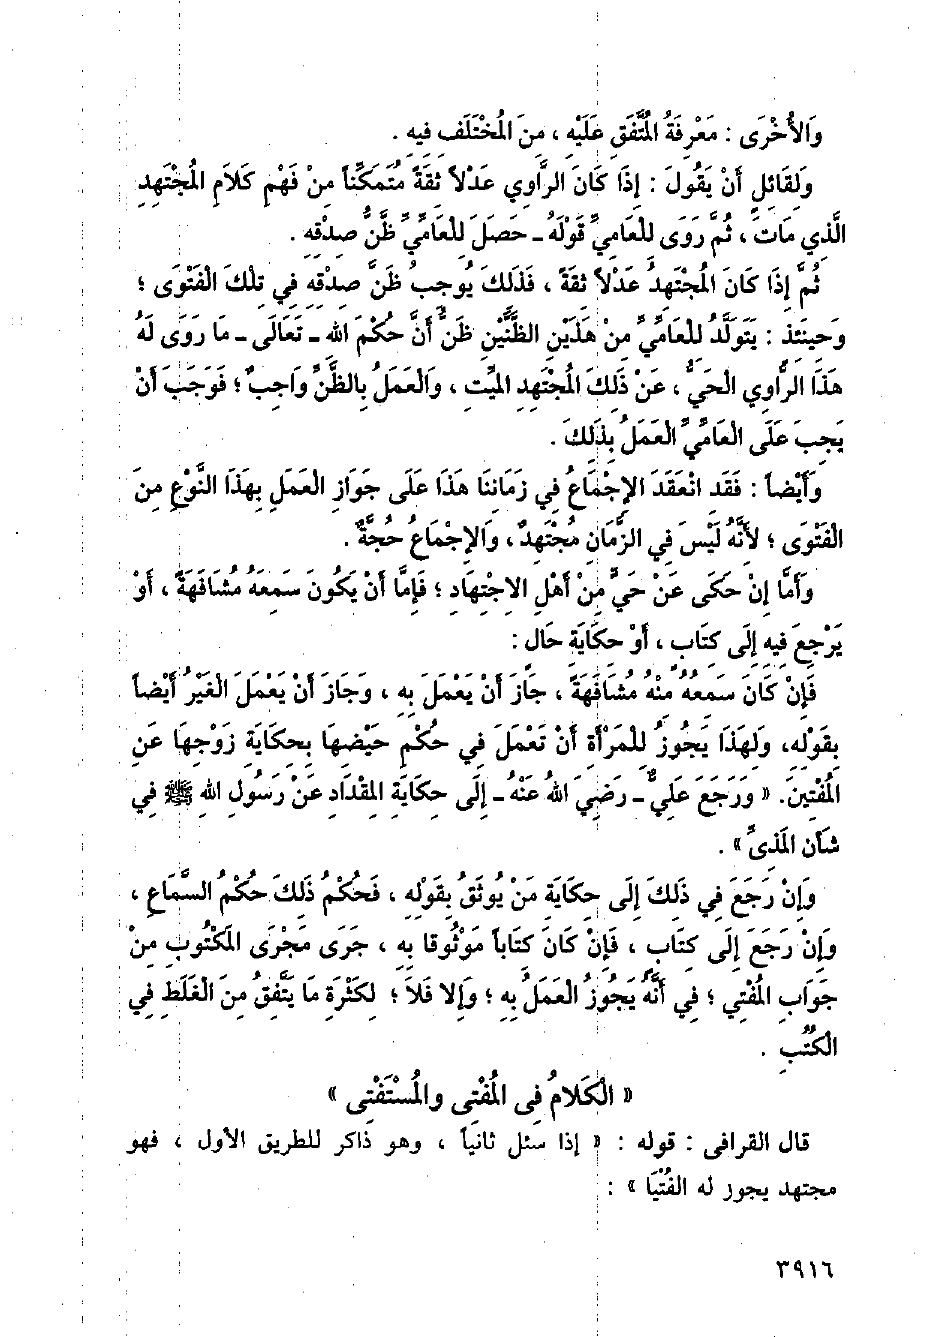 وَالأُخْرَى : مَعْرِفَةُ الْمُتَّفَقِ عَلَيْهِ ، مِنَ الْمُخْتَلَفِ فِيهِ .
وَلِقَائِلٍ أَنْ يَقُولَ : إِذَا كَانَ الرَّاوِي عَدْلاً ثِقَةً مُتَمَكِّناً مِنْ فَهْمِ كَلاَمِ الْمُجْتَهِدِ
الَّذِي مَاتَ ، ثُمَّ رَوَى لِلْعَامِيِّ قَوْلَهُ - حَصَلَ لِلْعَامِيِّ ظَنُّ صِدْقِهِ .
ثُمَّ إِذَا كَانَ الْمُجْتَهِدُ عَدْلاً ثِقَةً ، فَذَلِكَ يُوجِبُ ظَنَّ صِدْقِهِ فِي تِلْكَ الْفَتْوَى ؛
وَحِينَئِذٍ : يَتَوَلَّدُ لِلْعَامِيِّ مِنْ هَذَيْنِ الظَّنَّيْنِ ظَنُّ أَنَّ حُكْمَ اللهِ - تَعَالَى - مَا رَوَى لَهُ
هَذَا الرَّاوِي الْحَيُّ ، عَنْ ذَلِكَ الْمُجْتَهِدِ الْمَيِّتِ ، وَالْعَمَلُ بِالظَّنِّ وَاجِبٌ ؛ فَوَجَبَ أَنْ
يَجِبَ عَلَى الْعَامِيِّ الْعَمَلُ بِذَلِكَ .
وَأَيْضاً : فَقَدِ انْعَقَدَ الإِجْمَاعُ فِي زَمَانِنَا هَذَا عَلَى جَوَازِ الْعَمَلِ بِهَذَا النَّوْعِ مِنَ
الْفَتْوَى ؛ لأَنَّهُ لَيْسَ فِي الزَّمَانِ مُجْتَهِدٌ ، وَالإِجْمَاعُ حُجَّةٌ .
وَأَمَّا إِنْ حَكَى عَنْ حَيٍّ مِنْ أَهْلِ الاِجْتِهَادِ ؛ فَإِمَّا أَنْ يَكُونَ سَمِعَهُ مُشَافَهَةً ، أَوْ
يَرْجِعَ فِيهِ إِلَى كِتَابٍ ، أَوْ حِكَايَةِ حَالٍ :
فَإِنْ كَانَ سَمِعَهُ مِنْهُ مُشَافَهَةً ، جَازَ أَنْ يَعْمَلَ بِهِ ، وَجَازَ أَنْ يَعْمَلَ الْغَيْرُ أَيْضاً
بِقَوْلِهِ، وَلِهَذَا يَجُوزُ لِلْمَرْأَةِ أَنْ تَعْمَلَ فِي حُكْمِ حَيْضِهَا بِحِكَايَةِ زَوْجِهَا عَنِ
الْمُفْتِينَ. « وَرَجَعَ عَلِيٌّ - رَضِيَ اللهُ عَنْهُ - إِلَى حِكَايَةِ الْمِقْدَادِ عَنْ رَسُولِ اللهِ ﷺ فِي
شَأْنِ الْمَذْيِّ » .
وَإِنْ رَجَعَ فِي ذَلِكَ إِلَى حِكَايَةِ مَنْ يُوثَقُ بِقَوْلِهِ ، فَحُكْمُ ذَلِكَ حُكْمُ السَّمَاعِ ،
وَإِنْ رَجَعَ إِلَى كِتَابٍ ، فَإِنْ كَانَ كِتَاباً مَوْثُوقا بِهِ ، جَرَى مَجْرَى الْمَكْتُوبِ مِنْ
جَوَابِ الْمُفْتِي ؛ فِي أَنَّهُ يَجُوزُ الْعَمَلُ بِهِ ؛ وَإِلا فَلاَ ؛ لِكَثْرَةِ مَا يَتَّفِقُ مِنَ الْغَلَطِ فِي
الْكُتُبِ .
« الْكَلاَمُ فِى الْمُفْتِى وَالْمُسْتَفْتِى »
قال القرافى : قوله : « إذا سئل ثانياً ، وهو ذاكر للطريق الأول ، فهو
مجتهد يجوز له الفُتْيَا » :
٣٩١٦